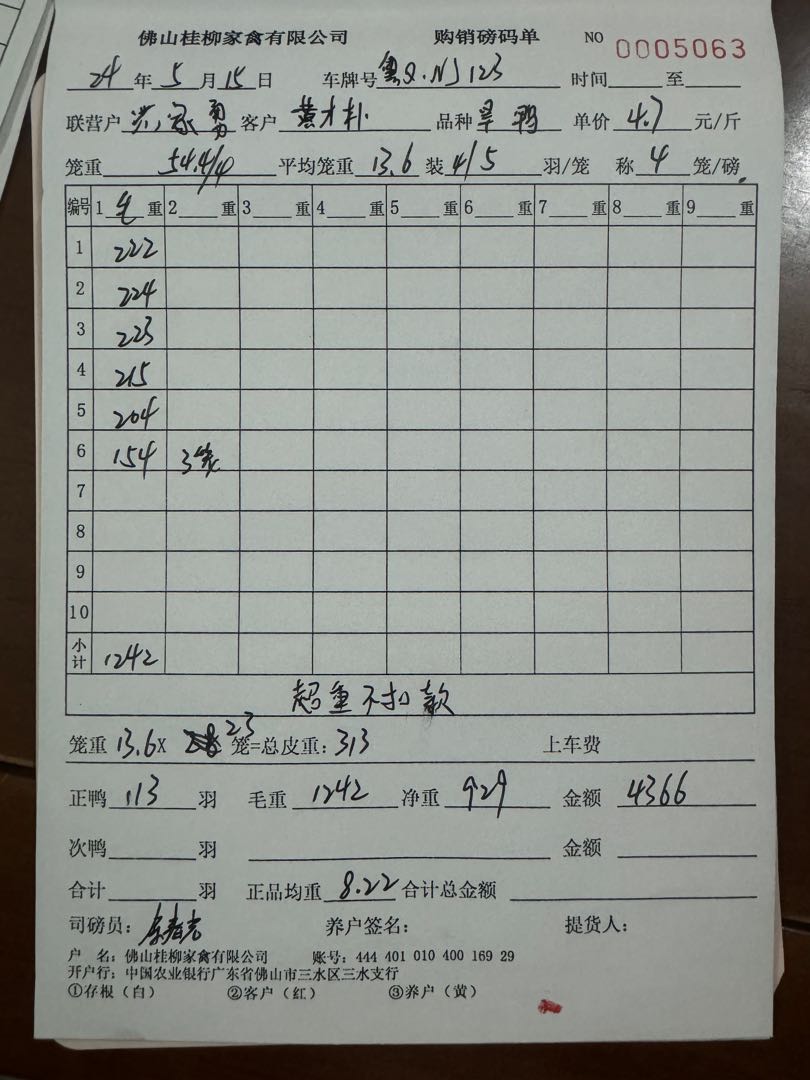 佛山桂柳家禽有限公司 购销磅码单 NO 0005063
24 年 5 月 15 日 车牌号 粤Q·NJ123 时间 至
联营户 勇 客户 黄才朴 品种 旱鸭 单价 4.7 元/斤
笼重 54.4/4 平均笼重 13.6 装 4/5 羽/笼 称 4 笼/磅
编号 1 毛 重 2 重 3 重 4 重 5 重 6 重 7 重 8 重 9 重
1 222
2 224
3 223
4 215
5 204
6 154 3笼
7
8
9
10
小计 1242
超重不扣款
笼重 13.6 X 23 笼=总皮重: 313 上车费
正鸭 113 羽 毛重 1242 净重 929 金额 4366
次鸭 羽 金额
合计 羽 正品均重 8.22 合计总金额
司磅员: 养户签名: 提货人:
户 名: 佛山桂柳家禽有限公司 账号: 444 401 010 400 169 29
开户行: 中国农业银行广东省佛山市三水区三水支行
①存根(白) ②客户(红) ③养户(黄)